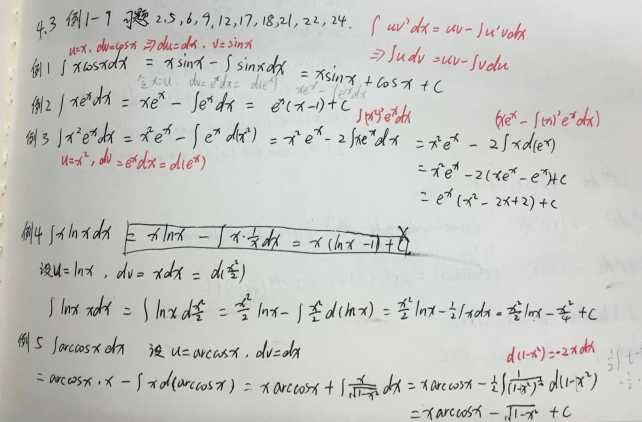 4.3 例1-9 习题 2.5,6,9,12,17,18,21,22,24. ∫uv'dx = uv - ∫u'vdx
u=x, dv=cosx ⇒ du=dx, v=sinx ⇒ ∫udv = uv - ∫vdu
例1 ∫xcosxdx = xsinx - ∫sinxdx = xsinx + cosx + C
例2 ∫xe^x dx = xe^x - ∫e^x dx = e^x(x-1) + C
∫(x²)'e^x dx (xe^x - ∫(x)'e^x dx)
例3 ∫x²e^x dx = x²e^x - ∫e^x d(x²) = x²e^x - 2∫xe^x dx = x²e^x - 2∫xd(e^x)
u=x², dv=e^x dx=d(e^x) = x²e^x - 2(xe^x - e^x)+C
= e^x(x² - 2x+2) + C
例4 ∫xlnxdx = xlnx - ∫x·1/x dx = x(lnx-1) + C
设u=lnx, dv=xdx = d(x²/2)
∫lnx xdx = ∫lnx d x²/2 = x²/2 lnx - ∫x²/2 d(lnx) = x²/2 lnx - 1/2∫xdx = x²/2 lnx - x²/4 + C
例5 ∫arccosxdx 设u=arccosx, dv=dx d(1-x²)=-2xdx
= arccosx·x - ∫xd(arccosx) = xarccosx + ∫x/√(1-x²) dx = xarccosx - 1/2∫1/(1-x²)^½ d(1-x²)
= xarccosx - √(1-x²) + C